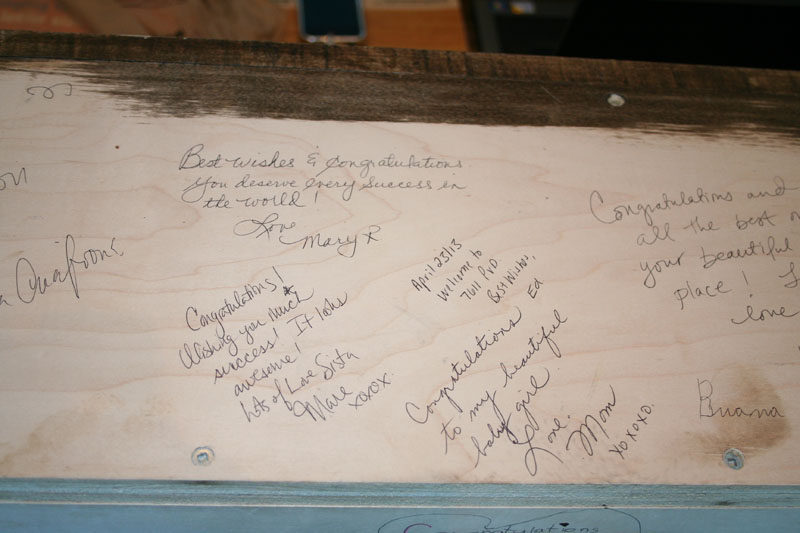 on
Best wishes & Congratulations
You deserve every success in
the world!
Love
Mary R
Congratulations and
all the best
your beautiful
place!
love
April 23/13
Welcome to
Best Wishes,
Ed
Congratulations!
Wishing you much
success! It looks
awesome!
Lots of Love Sista
Marie xoxox.
Congratulations
to my beautiful
baby girl
Love.
Mom
xoxoxo.
Buama
Congratulations